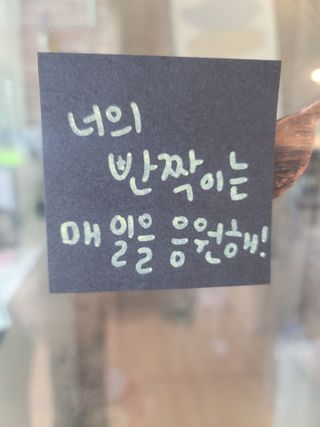 너의
반짝이는
매일을 응원해!